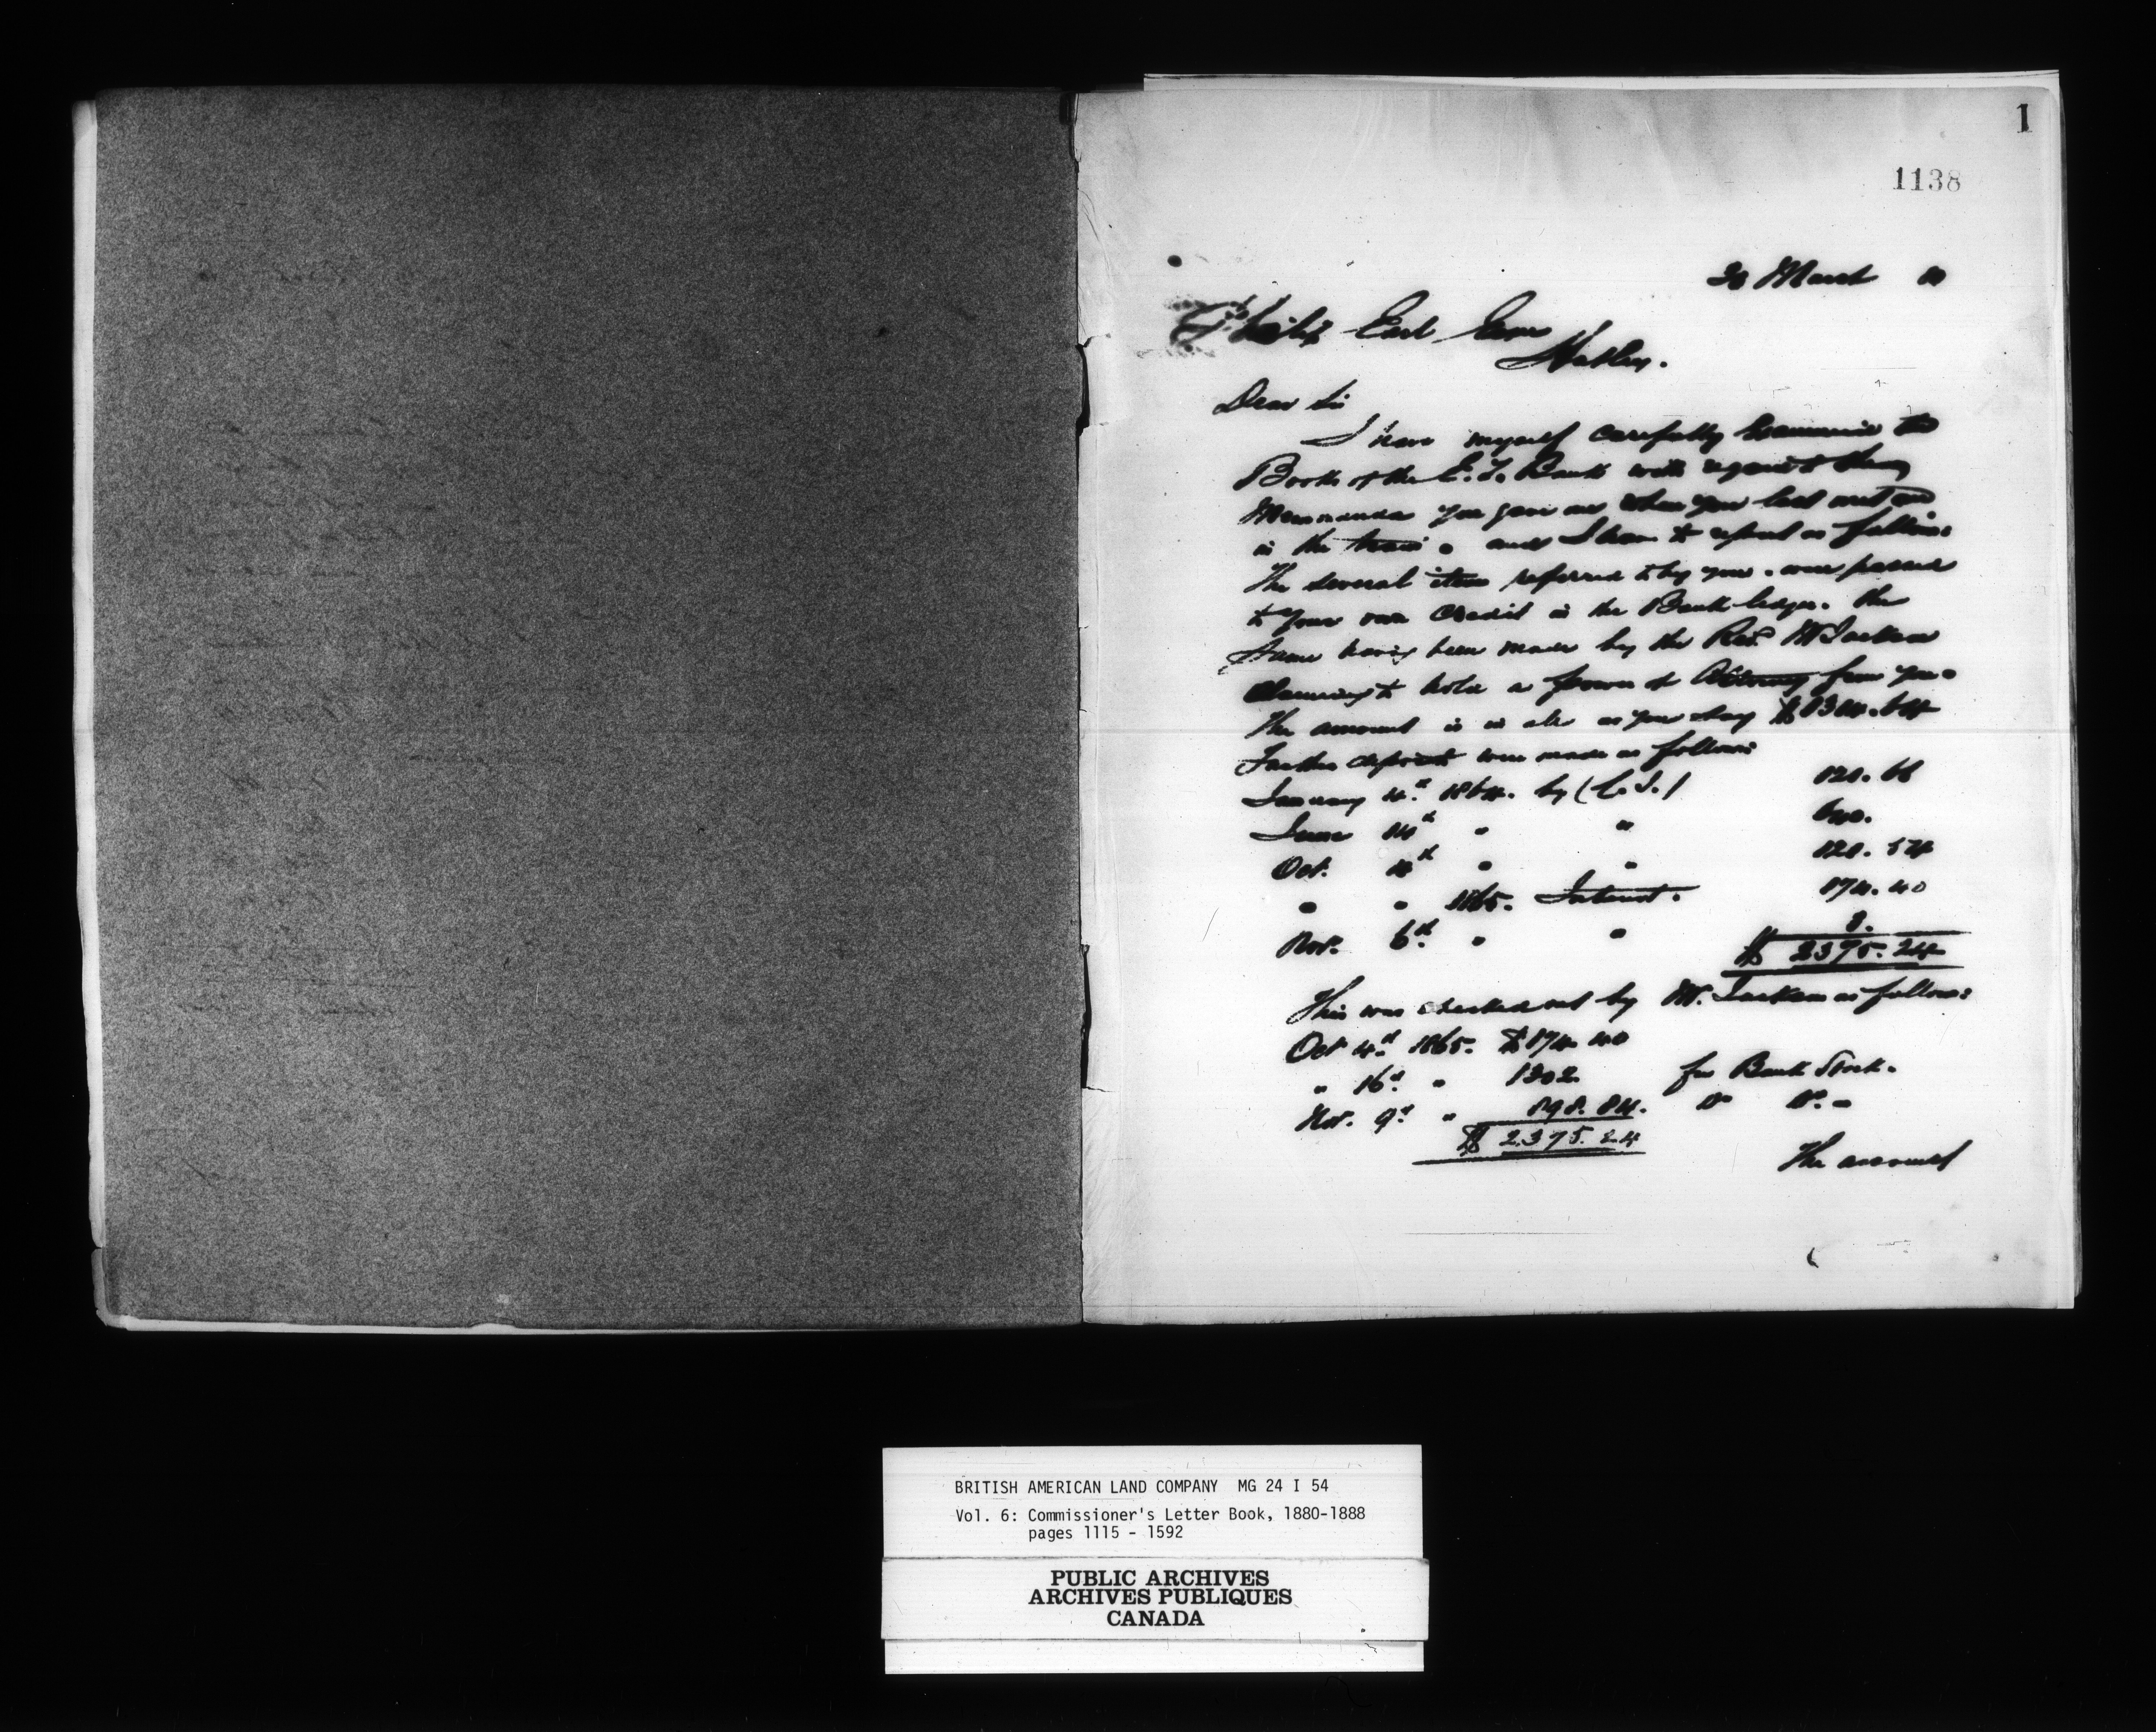 1
1138
30 March 80
Earl
Hatley.
Dear Sir
I have myself carefully Examined the
Books of the E. T. Bank with regard to the
Memoranda you gave me when you last met me
in the train. and I have to report as follows:
The several items referred to by you. were passed
to your own Credit in the Bank ledger. the
same having been made by the Revd. Mr Jackson
claiming to hold a power of Attorney from you.
The amount is in all as you say $1304.64
Further deposits were made as follows
January 4th 1864. by (C. I.) 128.66
June 14th " "
Oct. 4th " "
" " 1865. Interest. 174.40
Nov. 6th " " 8.
$ 2375.24
This was checked out by Mr. Jackson as follows:
Oct 4th 1865. $174.40
" 16th " 1302 for Bank Stock.
Nov. 9th " 898.84. Do Do.
$ 2375.24
The account
BRITISH AMERICAN LAND COMPANY MG 24 I 54
Vol. 6: Commissioner's Letter Book, 1880-1888
pages 1115 - 1592
PUBLIC ARCHIVES
ARCHIVES PUBLIQUES
CANADA